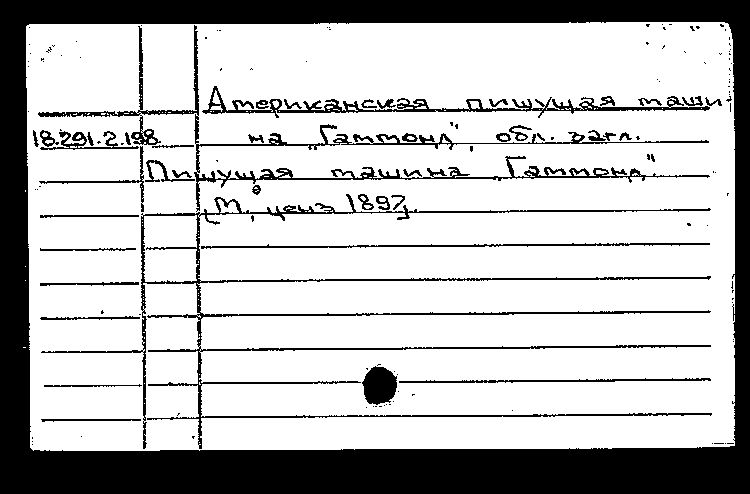 Американская пишущая маши-
18.291.2.198 на „Гаммонд", обл. загл.
Пишущая машина „Гаммонд"
[М., ценз 1897].